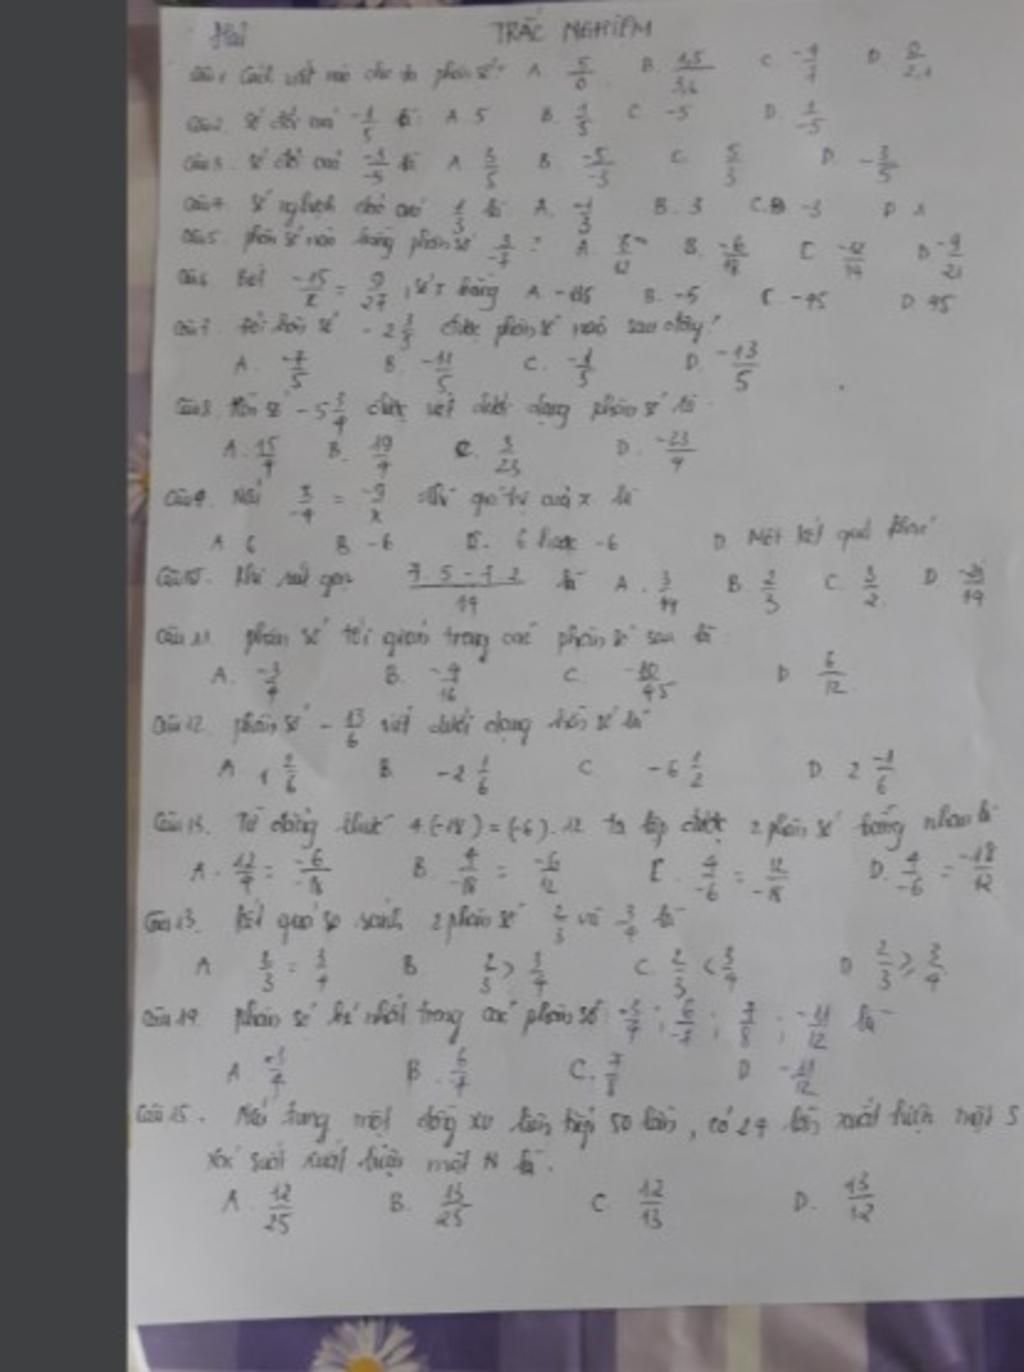 TRẮC NGHIỆM
Câu 1. Cách viết nào cho ta phân số? A. 5/0 B. 1,5/3,4 C. D. 0/2,1
Câu 2. Số đối của -1/5 là A. 5 B. 1/5 C. -5 D. 1/-5
Câu 3. Số đối của -3/-5 là A. 3/5 B. -5/-3 C. 5/3 D. -3/5
Câu 4. Số nghịch đảo của 1/3 là A. -1/3 B. 3 C. -3 D. 1
Câu 5. phân số nào bằng phân số 3/-7 = A. B. C. D. -9/21
Câu 6. Biết -15/x = 9/27, số x bằng A. B. -5 C. -45 D. 45
Câu 7. Đổi hỗn số -2 3/5 được phân số nào sau đây?
A. -7/5 B. -11/5 C. D. -13/5
Câu 8. Hỗn số -5 3/4 được viết dưới dạng phân số là
A. 15/4 B. 19/4 C. 3/23 D. -23/4
Câu 9. Nếu 3/-4 = -9/x thì giá trị của x là
A. 6 B. -6 C. 6 hoặc -6 D. Một kết quả khác
Câu 10. Khi rút gọn là A. B. 2/3 C. 3/2 D.
Câu 11. phân số tối giản trong các phân số sau là
A. -3/4 B. -4/16 C. -10/45 D. 6/12
Câu 12. phân số -13/6 viết dưới dạng hỗn số là
A. 1 2/6 B. -2 1/6 C. -6 1/2 D. 2 -1/6
Câu 13. Từ đẳng thức 4.(-18) = (-6).12 ta lập được 2 phân số bằng nhau là
A. 12/4 = -6/-18 B. 4/-18 = -6/12 C. 4/-6 = 12/-18 D. 4/-6 = -18/12
Câu 13. Kết quả so sánh 2 phân số 2/3 và 3/4 là
A. 2/3 = 3/4 B. 2/3 > 3/4 C. 2/3 < 3/4 D. 2/3 ⩾ 3/4
Câu 14. phân số nhất trong các phân số ; ; 7/8 ; -11/12 là
A. B. C. 7/8 D. -11/12
Câu 15. Nếu tung một đồng xu liên tiếp 50 lần, có 24 lần xuất hiện mặt S
xác suất xuất hiện mặt N là.
A. 12/25 B. 13/25 C. 12/13 D. 13/12